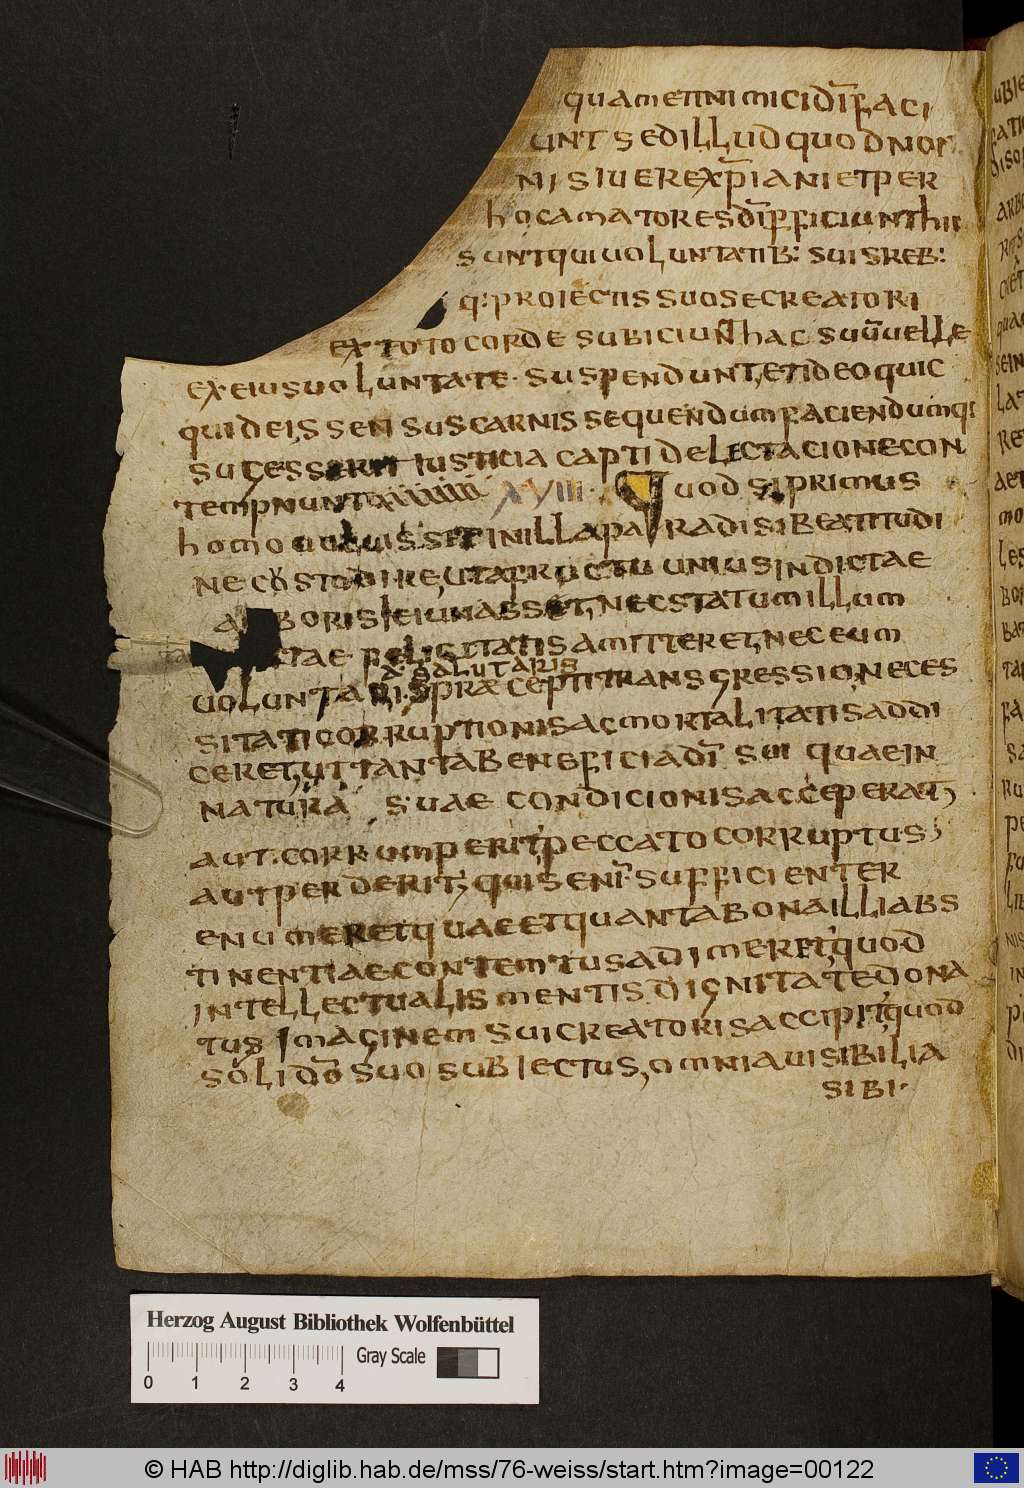 quam etinimici di faci
unt sed illud quod non
nisi uere xpiani et per
hoc amatores di efficiunt hii
sunt qui uoluntatib: suis reb:
q: proiectis suo se creatori
ex toto corde subiciunt hac suu uelle
ex eius uoluntate suspendunt, et ideo quic
quid eis sensus carnis sequendum faciendumq:
sugesserit iusticia capti delectacione con
tempnunt XVIII Quod si primus
homo uoluisset in illa paradisi beatitudi
ne custodire, ut a fructu unius indictae
arboris ieiunasset, nec statum illum
felicitatis amitteret, nec eum
a salutaris
uoluntaris præcepti transgressio, neces
sitati corruptionis ac mortalitatis addi
ceret, ut tanta beneficia di sui quae in
natura suae condicionis acceperat,
aut corrumperit peccato corruptus,
aut perderit, quis enim sufficienter
enumeret quae et quanta bona illi abs
tinentiae contemtus adimerit, quod
intellectualis mentis dignitate dona
tus imaginem sui creatoris accipit, quod
soli do suo subiectus, omnia uisibilia
sibi
Herzog August Bibliothek Wolfenbüttel
Gray Scale
0 1 2 3 4
© HAB http://diglib.hab.de/mss/76-weiss/start.htm?image=00122